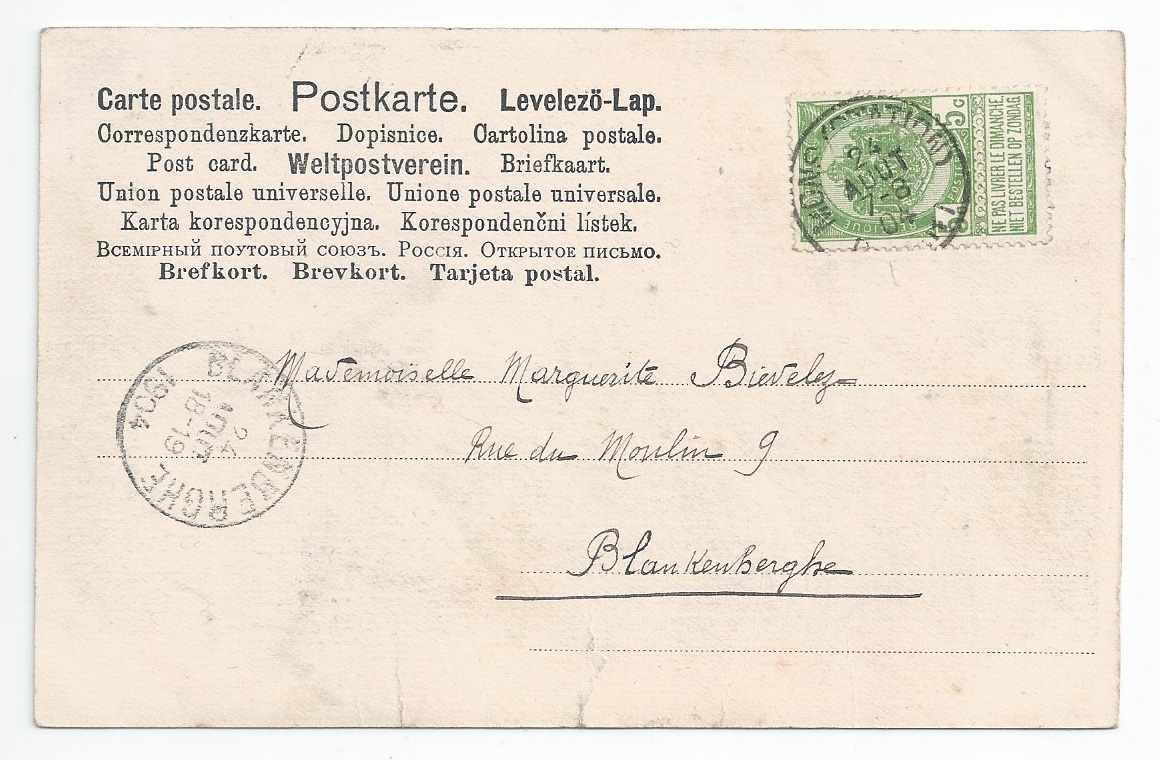 Carte postale. Postkarte. Levelező-Lap.
Correspondenzkarte. Dopisnice. Cartolina postale.
Post card. Weltpostverein. Briefkaart.
Union postale universelle. Unione postale universale.
Karta korespondencyjna. Korespondenčni lístek.
Всемірный поутовый союзъ. Россія. Открытое письмо.
Brefkort. Brevkort. Tarjeta postal.
5 C
NE PAS LIVRER LE DIMANCHE
NIET BESTELLEN OP ZONDAG
BELGIQUE
MONS (STATION)
24
AOUT
7-8
04
Mademoiselle Marguerite Bievelez
Rue du Moulin 9
Blankenberghe
BLANKENBERGHE
24
AOUT
18-19
1904